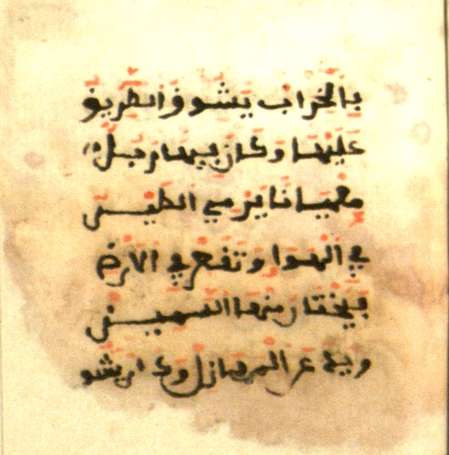 بالخراب والطريق
عليها وكان فيها رجل
معيانا يرمي الطير
في الهوا وتقع في الارض
فيختار منها السمين
ويدع المهازل